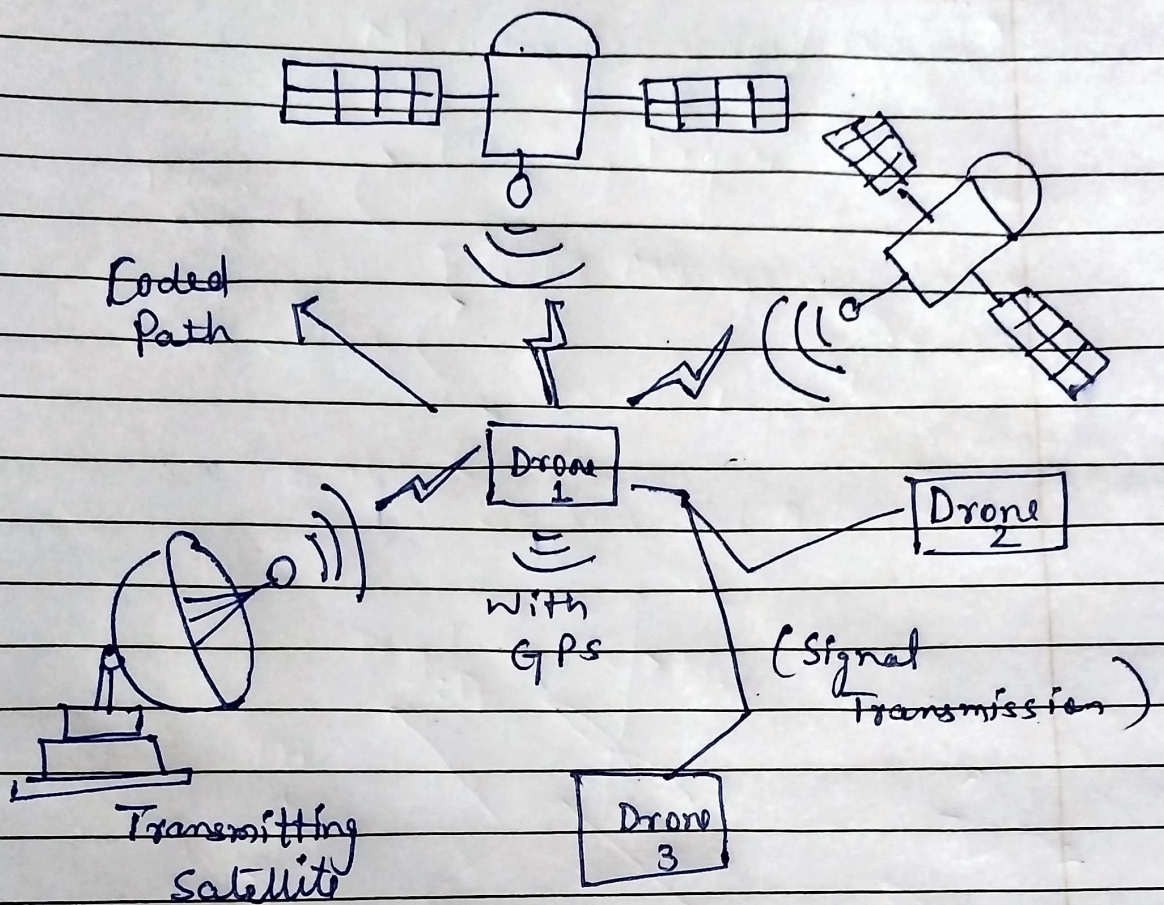 Coded
Path
Drone
1
Drone
2
With
GPS
(Signal
Transmission)
Transmitting
Satellite
Drone
3